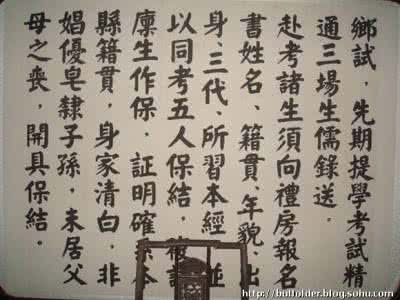 鄉試，先期提學考試精
通三場生儒錄送．
赴考諸生須向禮房報名
書姓名、籍貫、年貌、出
身、三代、所習本經，並
以同考五人保結，
廩生作保．証明確系本
縣籍貫，身家清白，非
娼優皂隸子孫，未居父
母之喪，開具保結．
http://bulfolder.blog.sohu.com